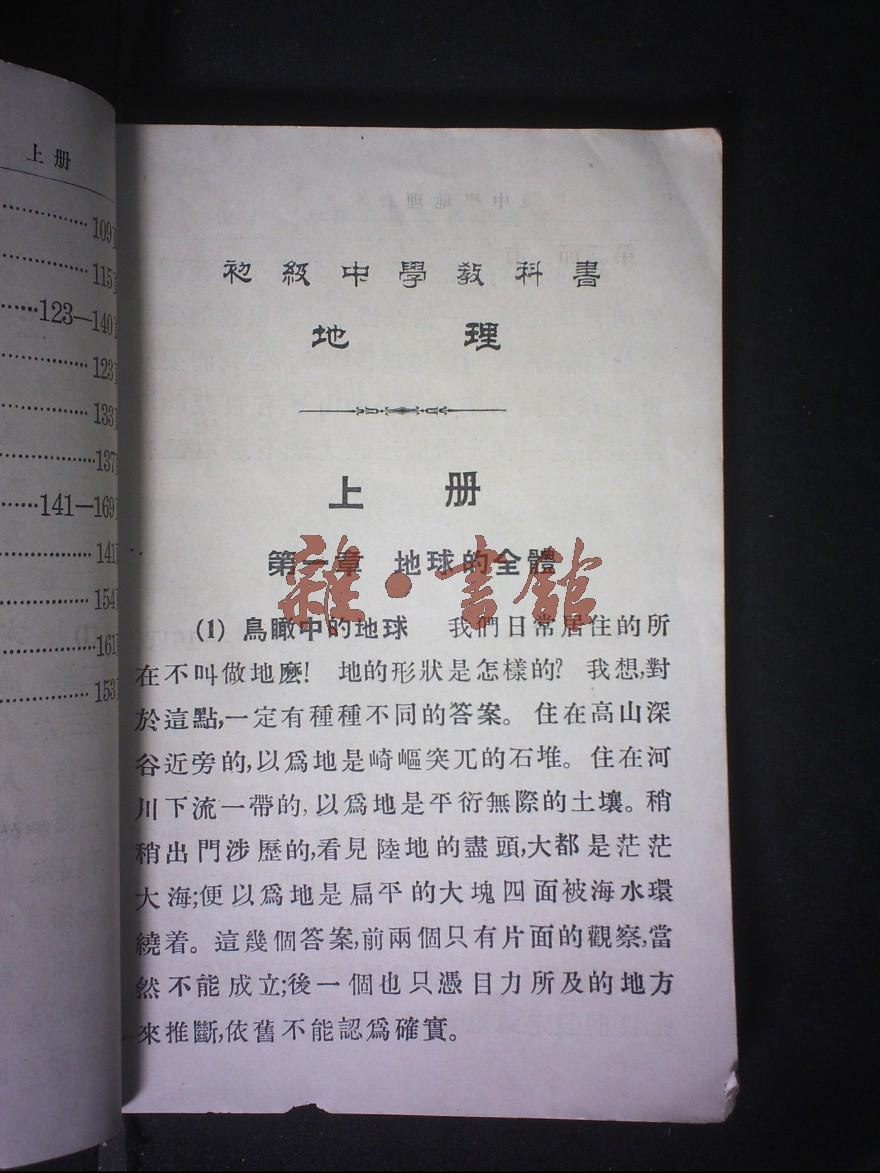 上册
109
115
123—140
123
133
137
141—169
141
154
161
153
初級中學教科書
地理
上册
第一章 地球的全體
雜·書館
(1) 鳥瞰中的地球 我們日常居住的所
在不叫做地麽! 地的形狀是怎樣的? 我想,對
於這點,一定有種種不同的答案。住在高山深
谷近旁的,以爲地是崎嶇突兀的石堆。住在河
川下流一帶的,以爲地是平衍無際的土壤。稍
稍出門涉歷的,看見陸地的盡頭,大都是茫茫
大海;便以爲地是扁平的大塊四面被海水環
繞着。這幾個答案,前兩個只有片面的觀察,當
然不能成立;後一個也只憑目力所及的地方
來推斷,依舊不能認爲確實。